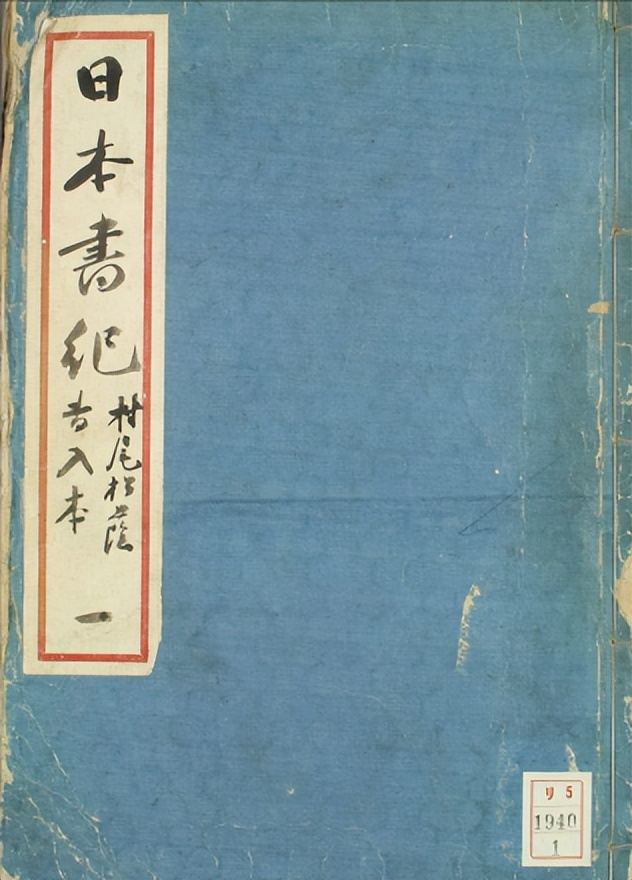 日本書紀
村尾松蔭
書入本
一
リ 5
1940
1